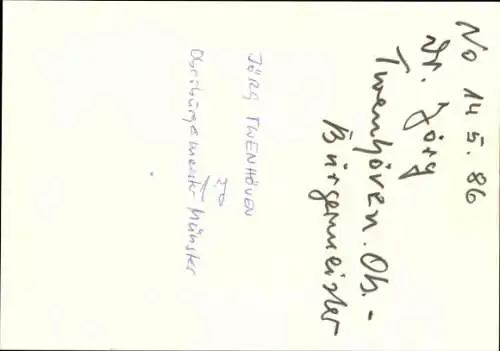 No 14 5. 86
Dr. Jörg
Twenhöven. Ob.-
Bürgermeister
JÖRG TWENHÖVEN
Oberbürgermeister Münster